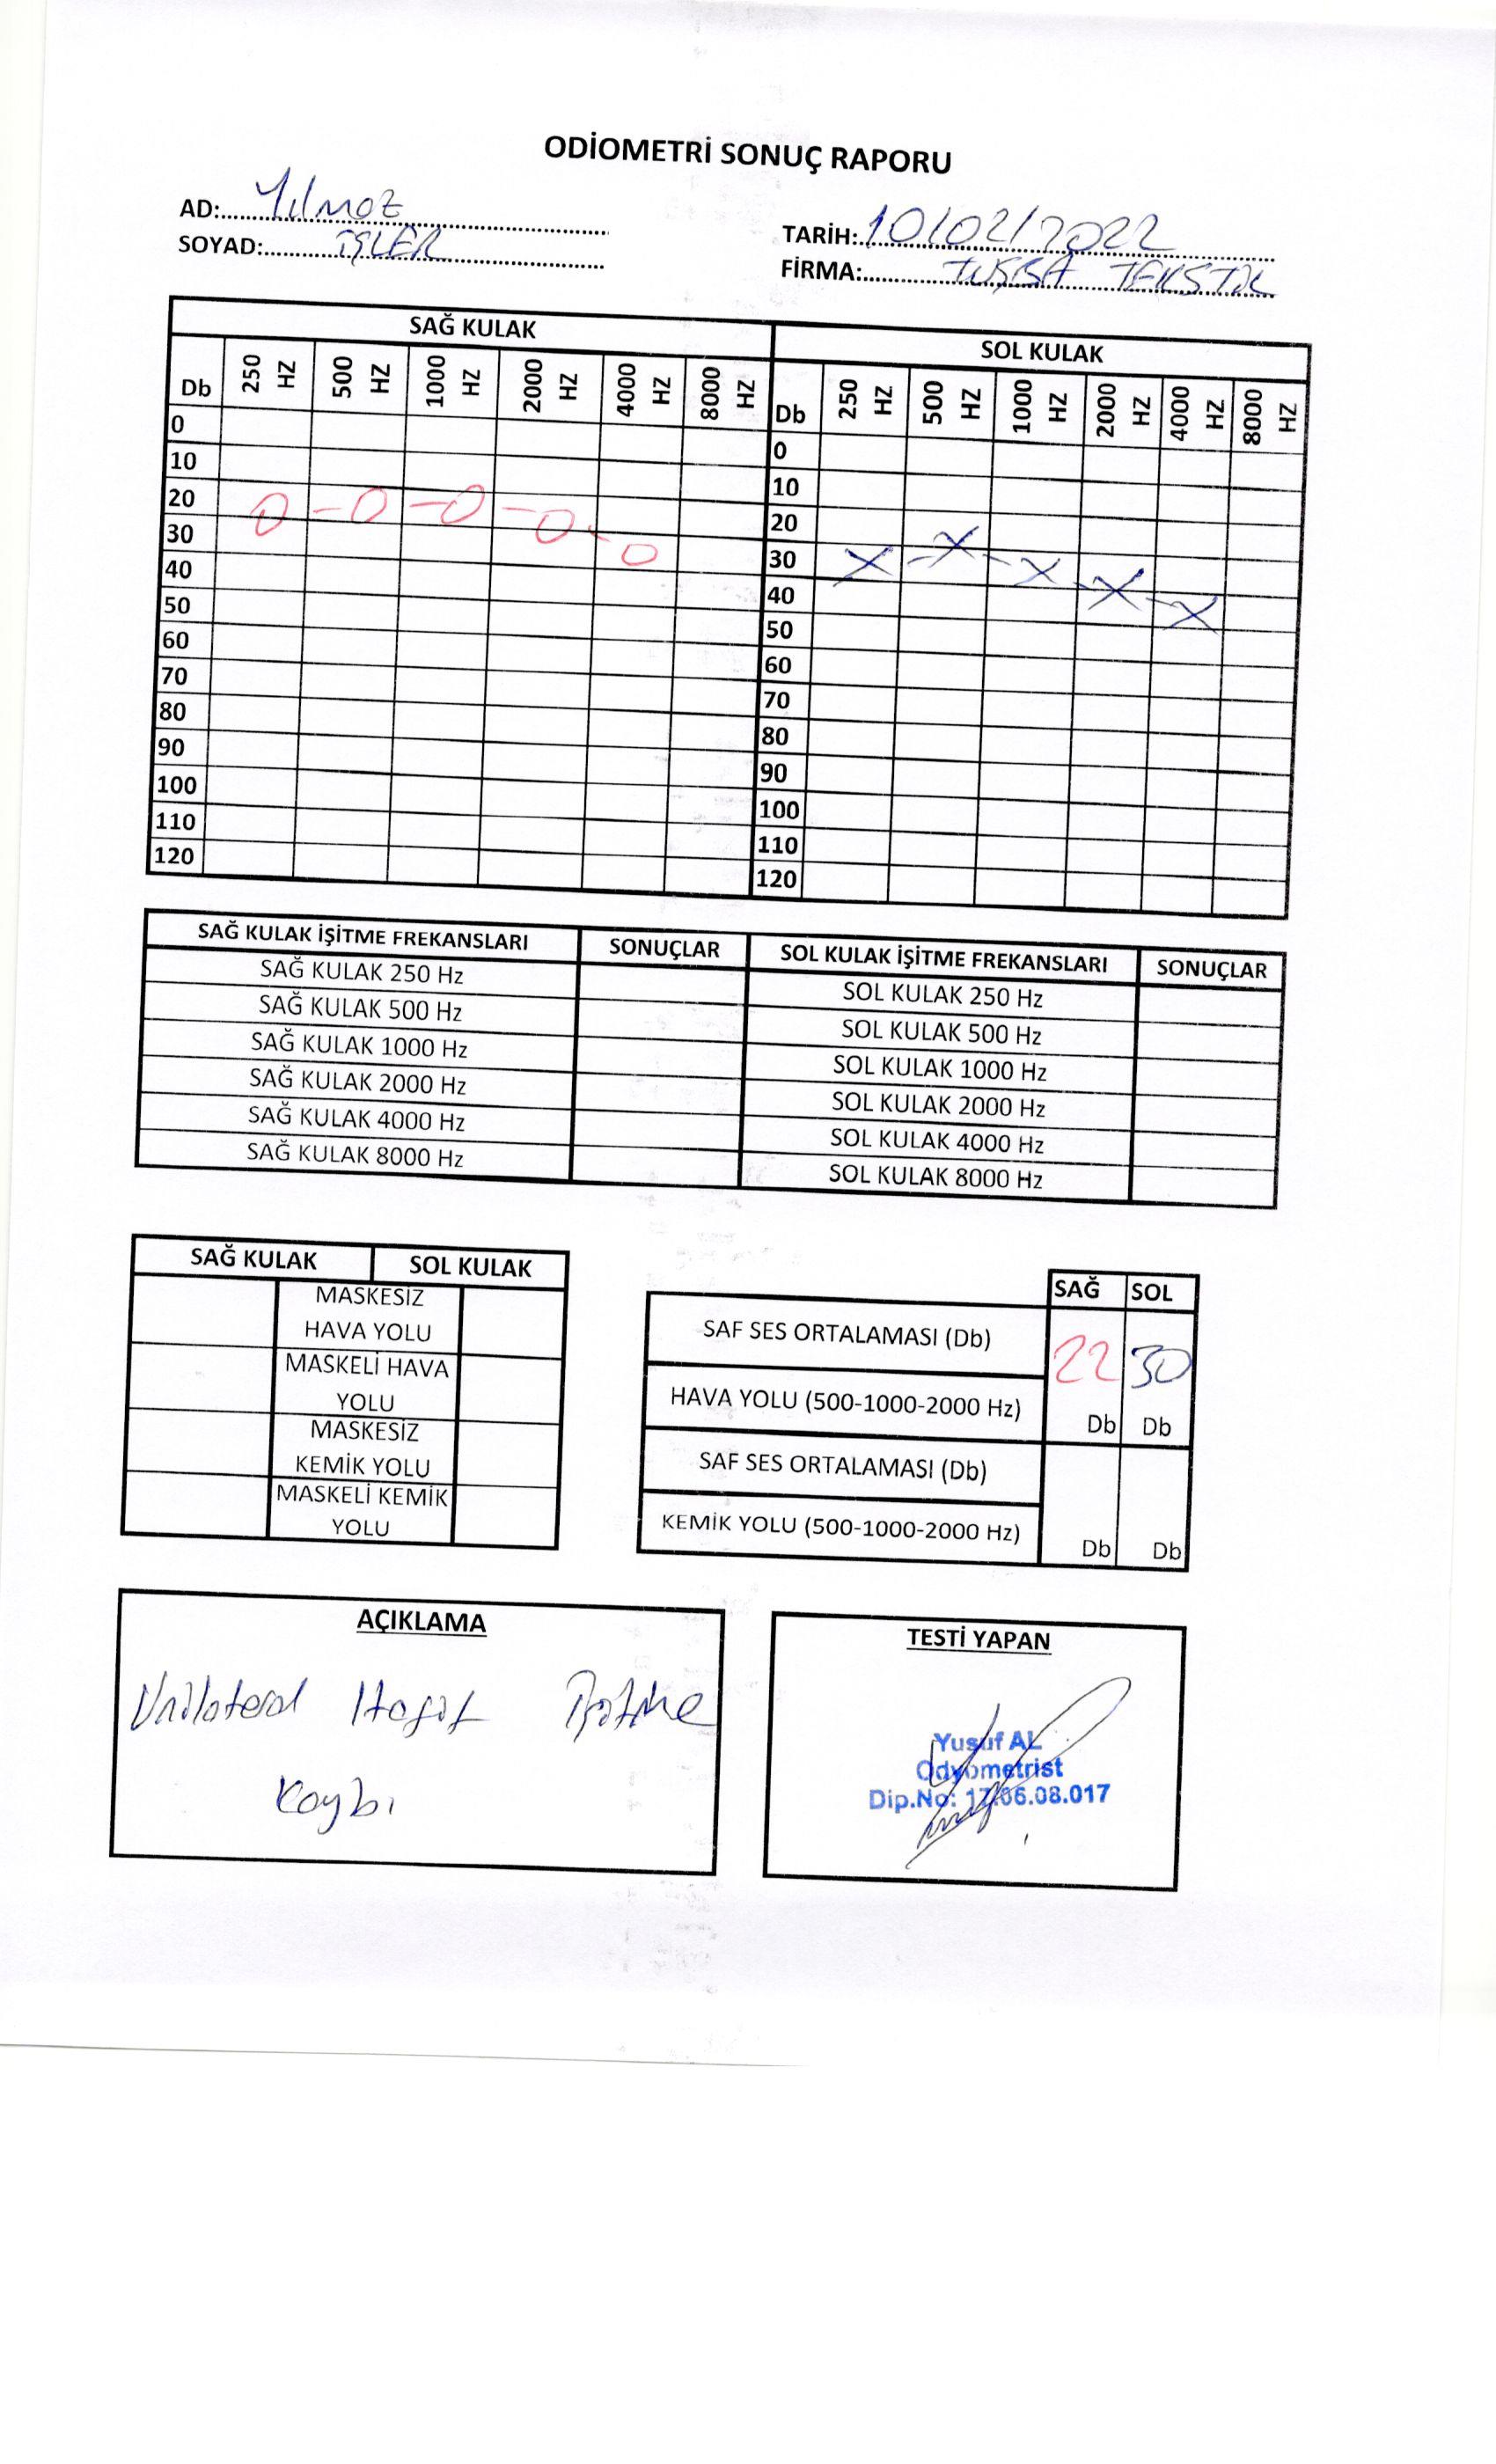 ODİOMETRİ SONUÇ RAPORU
AD: Yılmaz
SOYAD: İŞLER
TARİH: 10/02/2022
FİRMA: TUŞBA TEKSTİL
SAĞ KULAK SOL KULAK
Db 250 HZ 500 HZ 1000 HZ 2000 HZ 4000 HZ 8000 HZ Db 250 HZ 500 HZ 1000 HZ 2000 HZ 4000 HZ 8000 HZ
0 0
10 10
20 20
30 30
40 40
50 50
60 60
70 70
80 80
90 90
100 100
110 110
120 120
SAĞ KULAK İŞİTME FREKANSLARI SONUÇLAR SOL KULAK İŞİTME FREKANSLARI SONUÇLAR
SAĞ KULAK 250 Hz SOL KULAK 250 Hz
SAĞ KULAK 500 Hz SOL KULAK 500 Hz
SAĞ KULAK 1000 Hz SOL KULAK 1000 Hz
SAĞ KULAK 2000 Hz SOL KULAK 2000 Hz
SAĞ KULAK 4000 Hz SOL KULAK 4000 Hz
SAĞ KULAK 8000 Hz SOL KULAK 8000 Hz
SAĞ KULAK SOL KULAK
MASKESİZ
HAVA YOLU
MASKELİ HAVA
YOLU
MASKESİZ
KEMİK YOLU
MASKELİ KEMİK
YOLU
SAĞ SOL
SAF SES ORTALAMASI (Db) 22 30
HAVA YOLU (500-1000-2000 Hz) Db Db
SAF SES ORTALAMASI (Db)
KEMİK YOLU (500-1000-2000 Hz) Db Db
AÇIKLAMA
Unilateral Hafif İşitme
Kaybı
TESTİ YAPAN
Yusuf AL
Odyometrist
Dip.No: 17.06.08.017